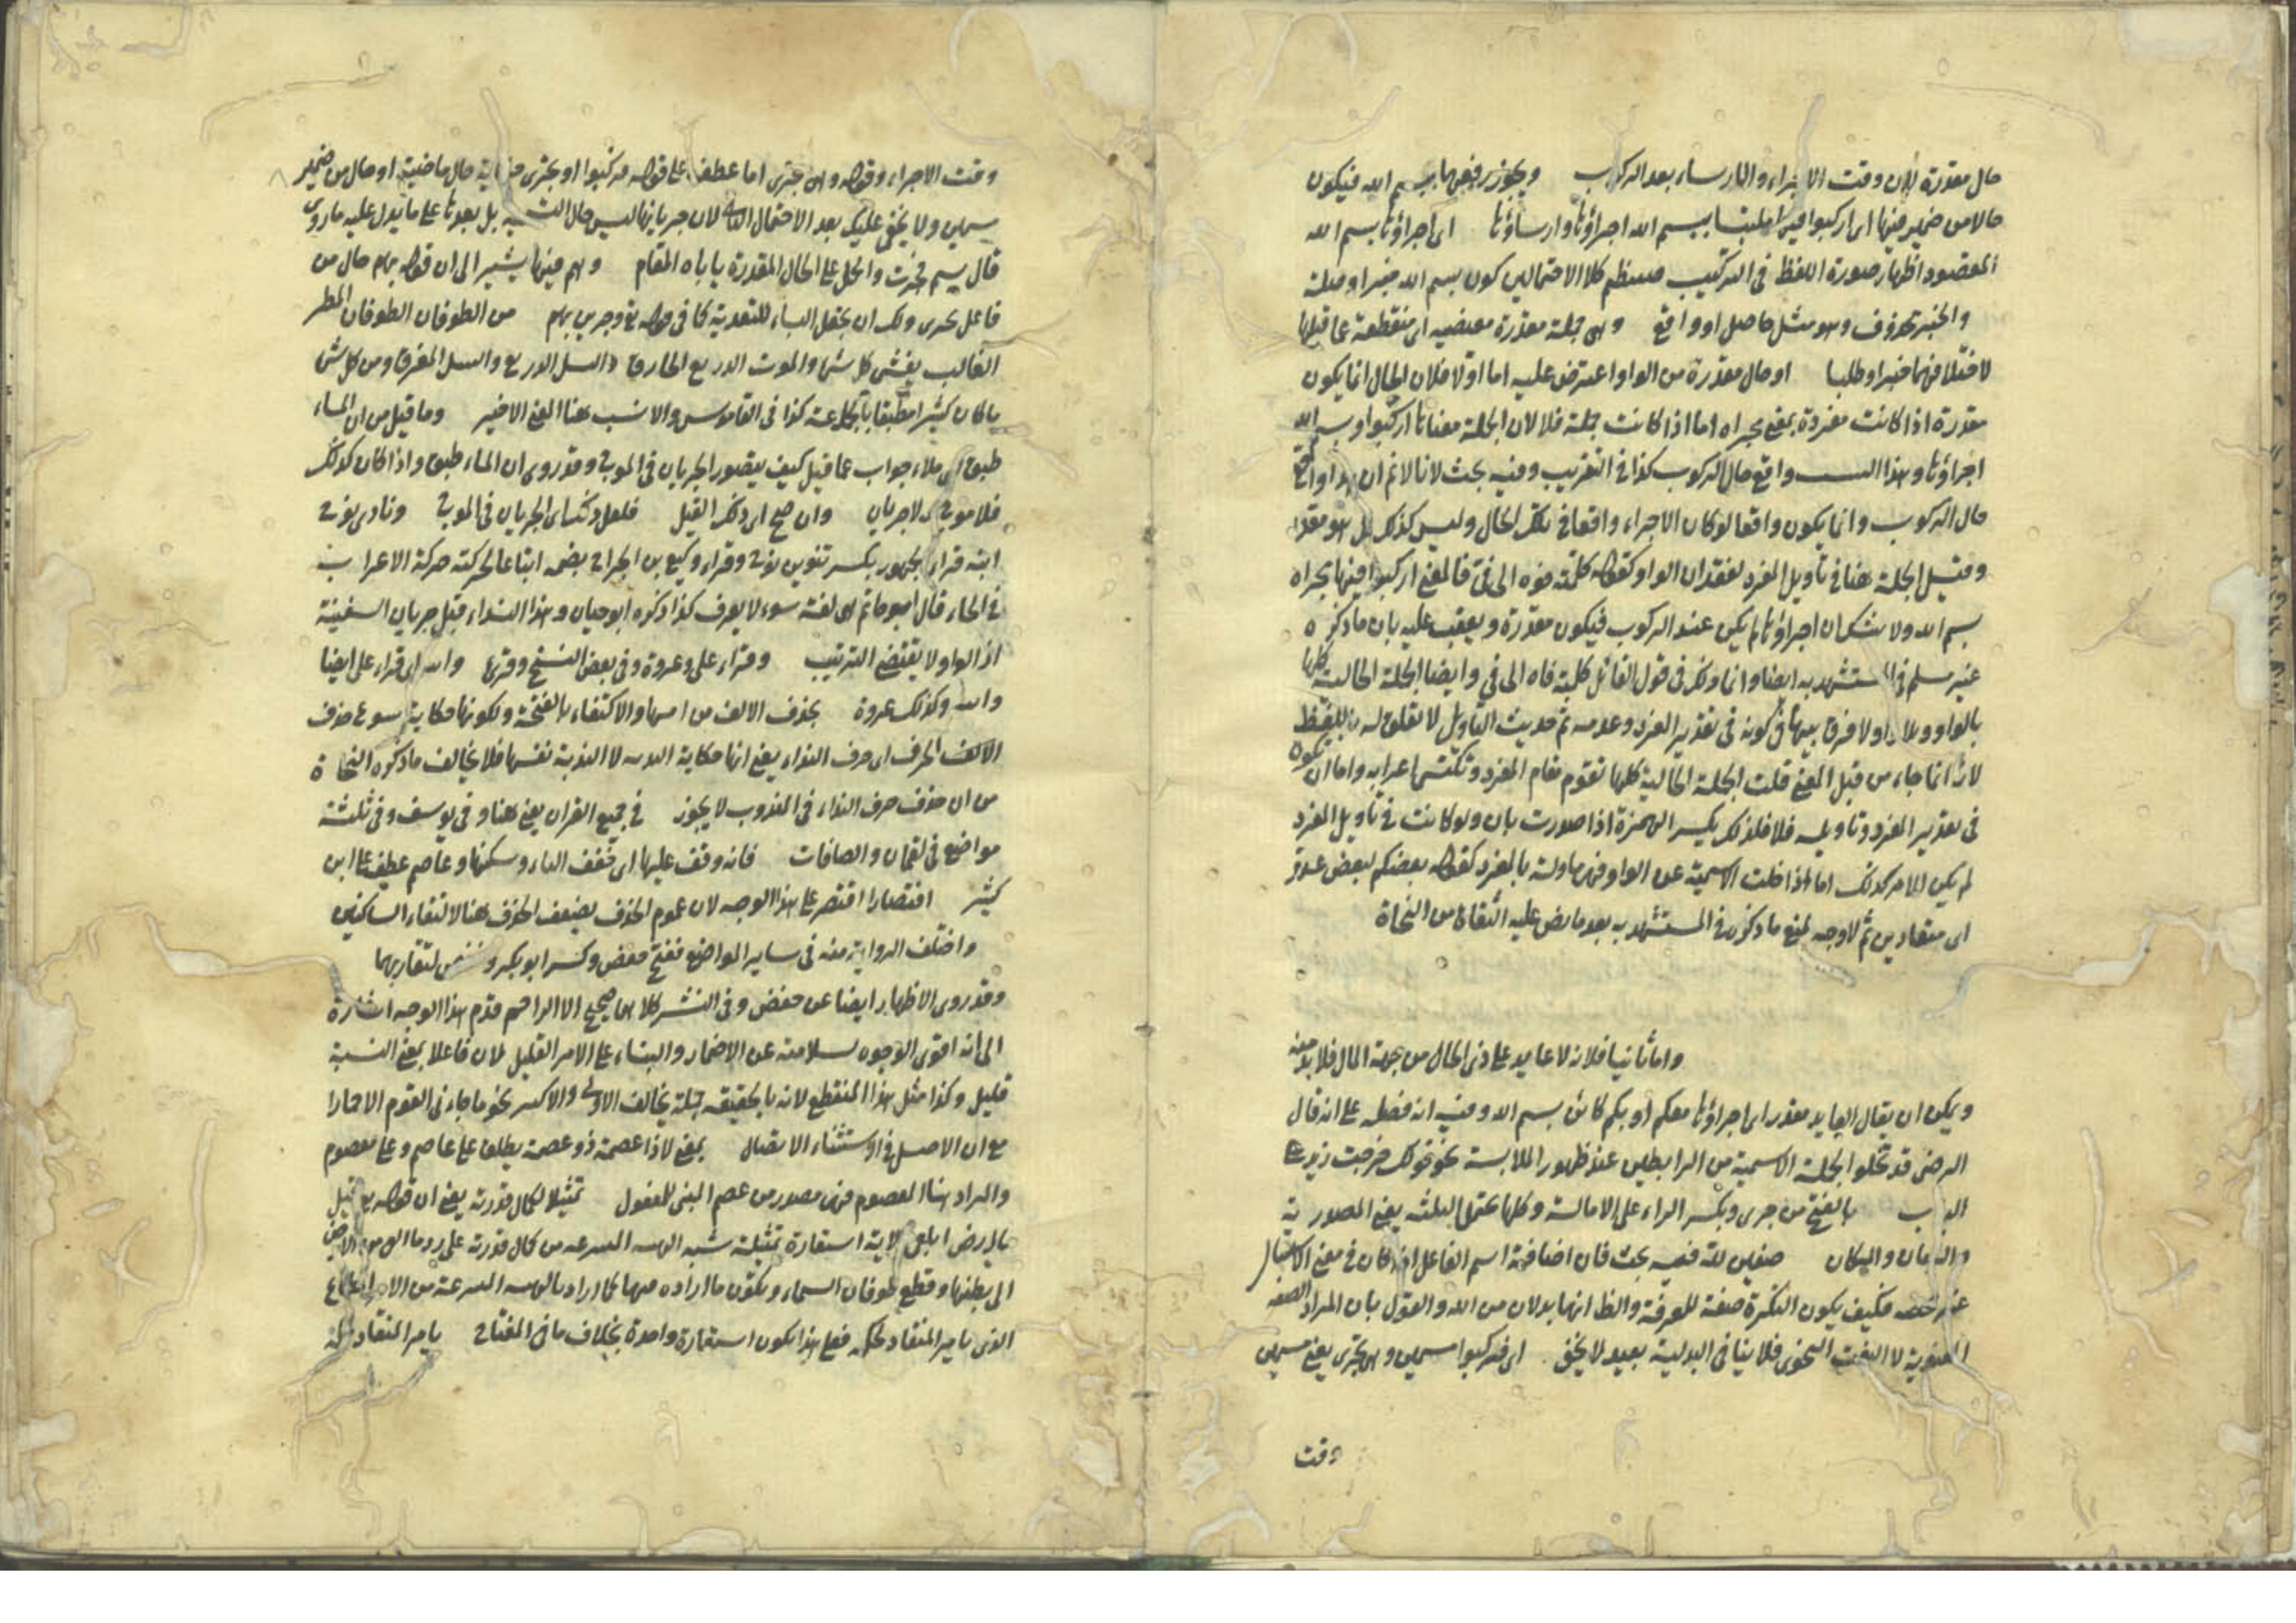 حال مقدرة لان وقت الاجراء والارساء بعد الركوب ويجوز رفعهما ببسم الله فيكون
حالا من ضمير فيها اى اركبوا فيها ملتبسا ببسم الله اجراؤها وارساؤها اى اجراؤها بسم الله
المقصود اظهار صورة اللفظ فى التركيب منتظم كلا الاحتمالين كون بسم الله خبرا وصلة
والخبر محذوف وهو مثل حاصل او واقع وهى جملة مقدرة مقتضبة اى منقطعة عما قبلها
لاختلافهما خبرا وطلبا او حال مقدرة من الواو اعترض عليه اما اولا فلان الحال انما يكون
مقدرة اذا كانت مفردة بمعنى مجراه اما اذا كانت جملة فلا لان الجملة معناها اركبوا وبسم الله
اجراؤها وهذا واقع حال الركوب كذا فى التقريب وفيه بحث لانا لا نم ان هذا واقع
حال الركوب وانما يكون واقعا لو كان الاجراء واقعا فى تلك الحال وليس كذلك بل هو مقدر
وقيل الجملة هنا فى تأويل المفرد لفقدان الواو كقوله كلمته فوه الى فىّ فالمعنى اركبوا فيها مجراه
بسم الله ولا شك ان اجراؤها لم يكن عند الركوب فيكون مقدرة ويعقب عليه بان ما ذكره
غير مسلم فى المستشهد به ايضا وانما ذلك فى قول القائل كلمته فاه الى فى وايضا الجملة الحالية كلها
بالواو وبلا واو لا فرق بينها فى كونه فى تقدير المفرد وعدمه ثم حديث التأويل لا تعلق له باللفظ
لانه انما جاء من قبل المعنى قلت الجملة الحالية كلها تقوم مقام المفرد وتكتسى اعرابه واما ان يكون
فى تقدير المفرد وتاويله فلا فلذلك يكسر الهمزة اذا صدرت بان ولو كانت فى تأويل المفرد
لم يكن الامر كذلك اما اذا خلت الاسمية عن الواو فهى ماولة بالمفرد كقوله بعضكم لبعض عدو
اى متعادين ثم لا وجه لمنع ما ذكره فى المستشهد به بعد ما نص عليه الثقات من النحاة
واما ثانيا فلانه لا عايد على ذى الحال من جهة الحال فلا بد منه
ويمكن ان يقال العايد مقدر اى اجراؤها معكم او بكم كائن بسم الله وفيه انه فصله على انه قال
الرضى قد تخلو الجملة الاسمية من الرابطين عند ظهور الملابسة نحو قولك خرجت زيد على
الباب بالفتح من جرى وبكسر الراء على الامالة وكلها تحتمل الثلثة يعنى المصدرية
والزمان والمكان صفين لله فيه بحث فان اضافة اسم الفاعل اذا كان فى معنى الاستقبال
غير محضه فكيف يكون النكرة صفة للمعرفة والظ انهما بدلان من الله والقول بان المراد الصفة
المعنوية لا النعت النحوى فلا ينافى البدلية بعيد لا يخفى اى فركبوا مسمين وهى تجرى يعنى مسمين
وقت
وقت الاجراء وقوله وهى تجرى اما عطف على قوله فركبوا او تجرى حكاية حال ماضية او حال من ضمير
مسمين ولا يخفى عليك بعد الاحتمال لان جريانها ليس حال التسمية بل بعدها على ما يدل عليه ما روى
قال بسم فجرت والحمل على الحال المقدرة ياباه المقام وهم فيها يشير الى ان قوله بهم حال من
فاعل تجرى ولك ان تجعل الباء للتعدية كما فى قوله تع وجرين بهم من الطوفان الطوفان المطر
الغالب يغشى كل شئ والموت الذريع الجارف والسيل المغرق ومن كل شئ
ما كان كثيرا مطبقا بالجماعة كذا فى القاموس والانسب هنا المعنى الاخير وما قيل من ان الماء
طبق ملاء جواب عما قيل كيف يتصور الجريان فى الموج وقد روى ان الماء طبق واذا كان كذلك
فلا موج ولا جريان وان صح اى ذلك القيل فلعل ذلك اى الجريان فى الموج ونادى نوح
ابنه قراء الجمهور بكسر تنوين نوح وقراء وكيع بن الجراح بضمه اتباعا لحركته حركة الاعراب
فى الحاء قال ابو حاتم هى لغة سوء لا يعرف كذا ذكره ابو حيان وهذا النداء قبل جريان السفينة
اذ الواو لا يقتضى الترتيب وقراء على وعروة وفى بعض النسخ وقرئ اى قراء على ايضا
وكذلك عروة بحذف الالف من والاكتفاء بالفتحة ولكونها حكاية سوغ حذف
الالف الحرف اى حرف النداء يعنى انها حكاية الندبة لا الندبة نفسها فلا يخالف ما ذكره النحاة
من ان حذف حرف النداء فى المندوب لا يجوز فى جميع القران يعنى هنا وفى يوسف وفى ثلثة
مواضع فى لقمان والصافات فانه وقف عليها اى خفف الياء وسكنها وعاصم عطف على ابن
كثير اقتصارا اقتصر على هذا الوجه لان عموم الحذف يضعف الحذف هنا لالتقاء الساكنين
واختلف الرواية منه فى ساير المواضع ففتح حفص وكسر ابو بكر لتقاربهما
وقد روى الاظهار ايضا عن حفص وفى النشر كلاهما صحيح الا الراحم قدم هذا الوجه اشارة
الى انه اقوى الوجوه سلامته عن الاضمار والبناء على الامر القليل لان فاعلا بمعنى النسبة
قليل وكذا مثل هذا المنقطع لانه بالحقيقة جملة يخالف الاولى والاكثر نحو ما جاءنى القوم الا حمارا
مع ان الاصل فى الاستثناء الاتصال بمعنى لا ذا عصمة ذو عصمة يطلق على عاصم وعلى معصوم
والمراد هنا المعصوم فهى مصدر من عصم المبنى للمفعول تمثيلا لكمال قدرته يعنى ان قوله تع قيل
يا ارض ابلعى الاية استعارة تمثيلية شبه من كمال قدرته على رد ما
الى بطنها وقطع طوفان السماء وتكون ما اراده فيها كما اراد
الذى يامر المنقاد لحكمه فعلى هذا يكون استعارة واحدة بخلاف ما فى المفتاح يامر المنقاد